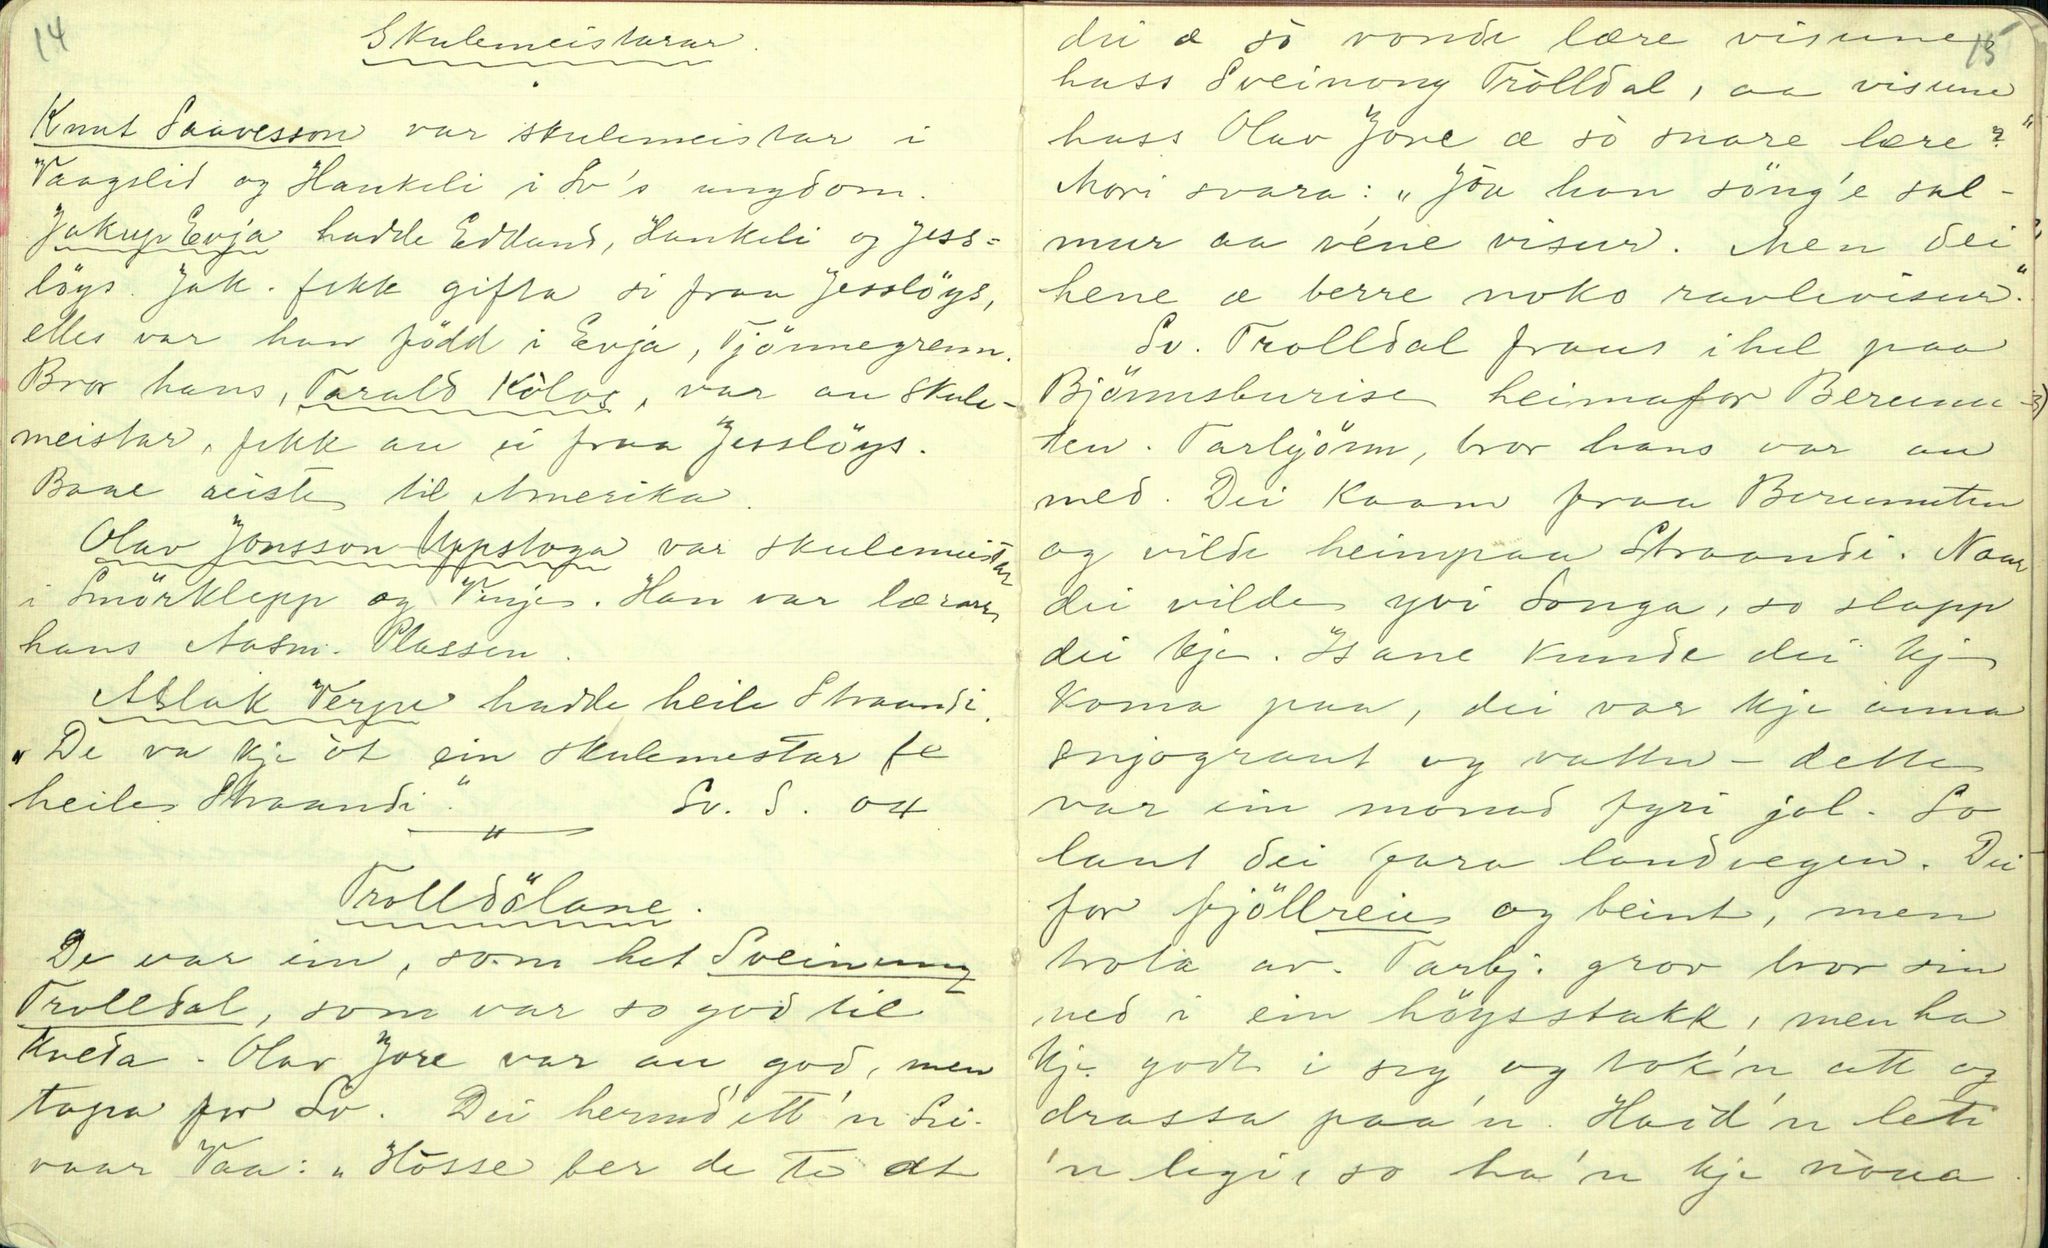 14
Skulemeistarar.
Knut Saavesson var skulemeistar i
Vaagslid og Haukeli i Sv's ungdom.
Jakup Evja hadde Edland, Haukeli og Jess=
löys. Jak. fekk gifta si fraa Jesslöys,
elles var han född i Evja, Tjönnegrenn.
Bror hans, Tarald Kòlos, var au skule-
meistar, fekk au si fraa Jesslöys.
Baae reiste til Amerika.
Olav Jonsson Uppstoga var skulemeistar
i Smörklepp og Vinje. Han var lærarn
hans Aasm. Plassen.
Aslak Verpe hadde heile Straandi.
"De va kje òt ein skulemestar fe
heile Straandi". Sv. S. 04
Trolldölane.
De var ein, som het Sveinung
Trolldal, som var so god til
kveda. Olav Jore var au god, men
tapa for Sv. Dei hermd'ett'n Sei-
vaar Vaa: "Hòsse ber de te at
15
dei æ sò vonde lære visune
hass Sveinong Tròlldal, aa visune
hass Olav Jore æ sò snare lære?"
Mori svara: "Jòa han söng'e sal-
mur aa véne visur. Men dei
hene æ berre noko ravlevisur."
Sv. Trolldal fraus ihel paa
Björnnsburise heimafor Berunu-
ten. Tarbjörn, bror hans var au
med. Dei kaam fraa Berunuten
og vilde heimpaa Straandi. Naar
dei vilde yvi Songa, so slapp
dei kje. Isane kunde dei kje
koma paa, dei var kje anna
snjograut og vatn - dette
var ein monad fyri jol. So
laut dei fara landvegen. Dei
for fjöllreie og beint, men
trota av. Tarbj. grov bror sin
ned i ein höysstakk, men ha
kje godt i seg og tok'n att og
drassa paa'n. Haid'n leti
'n legi, so ha'n kje nòua